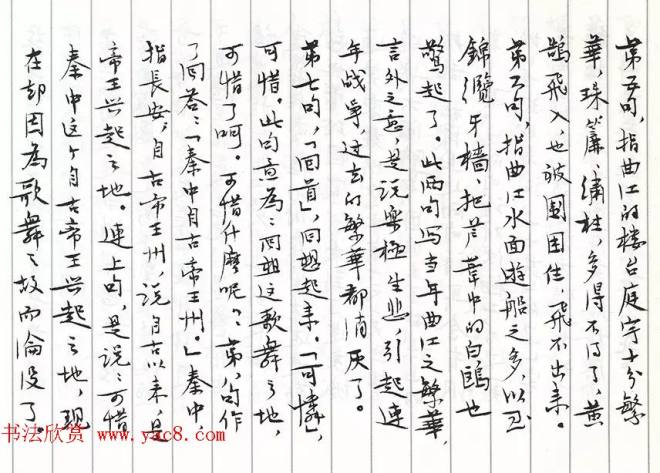 第五句，指曲江的楼台庭宇十分繁
華，珠簾、繡柱，多得不得了，黄
鵠飛入，也被圍困住，飛不出来。
第六句，指曲江水面遊船之多，以至
錦纜牙檣，把芦葦中的白鷗也
驚起了。此两句写当年曲江之繁華，
言外之意，是说樂極生悲，引起連
年战争，过去的繁華都消灰了。
第七句，「回首」，回想起来。「可憐」，
可惜。此句意为：回想这歌舞之地，
可惜了呵。可惜什麼呢？第八句作
了回答：「秦中自古帝王州。」秦中，
指長安，自古帝王州，说自古以来，是
帝王兴起之地。連上句，是说：可惜
秦中这个自古帝王兴起之地，現
在却因為歌舞之故而淪没了。
书法欣赏 www.yac8.com